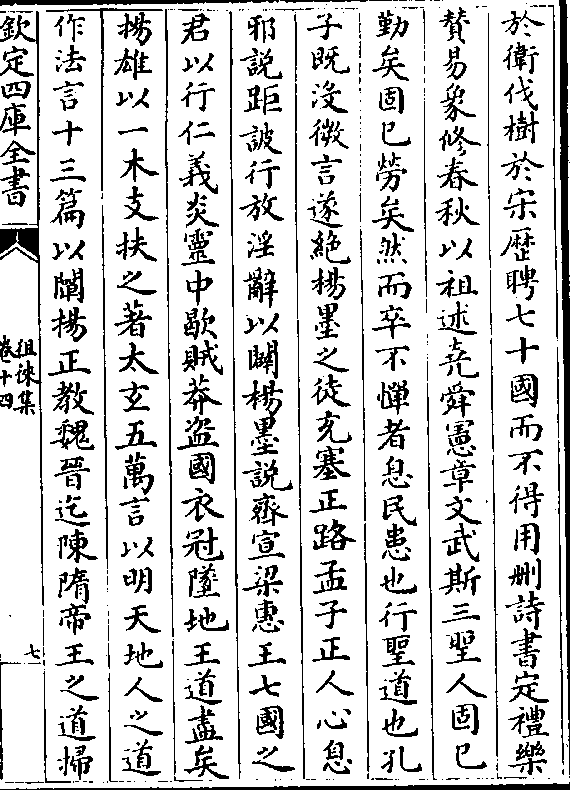 於衛伐樹於宋歴聘七十國而不得用刪詩書定禮樂
賛易象修春秋以祖述堯舜憲章文武斯三聖人固已
勤矣固已勞矣然而卒不憚者息民患也行聖道也孔
子既沒微言遂絶楊墨之徒充塞正路孟子正人心息
邪說距詖行放淫辭以闢楊墨説齊宣梁惠王七國之
君以行仁義炎靈中歇賊莽盗國衣冠墜地王道盡矣
揚雄以一木支扶之著太玄五萬言以明天地人之道
作法言十三篇以闡揚正教魏晉迄陳隋帝王之道掃
欽定四庫全書
徂徠集
卷十四
七